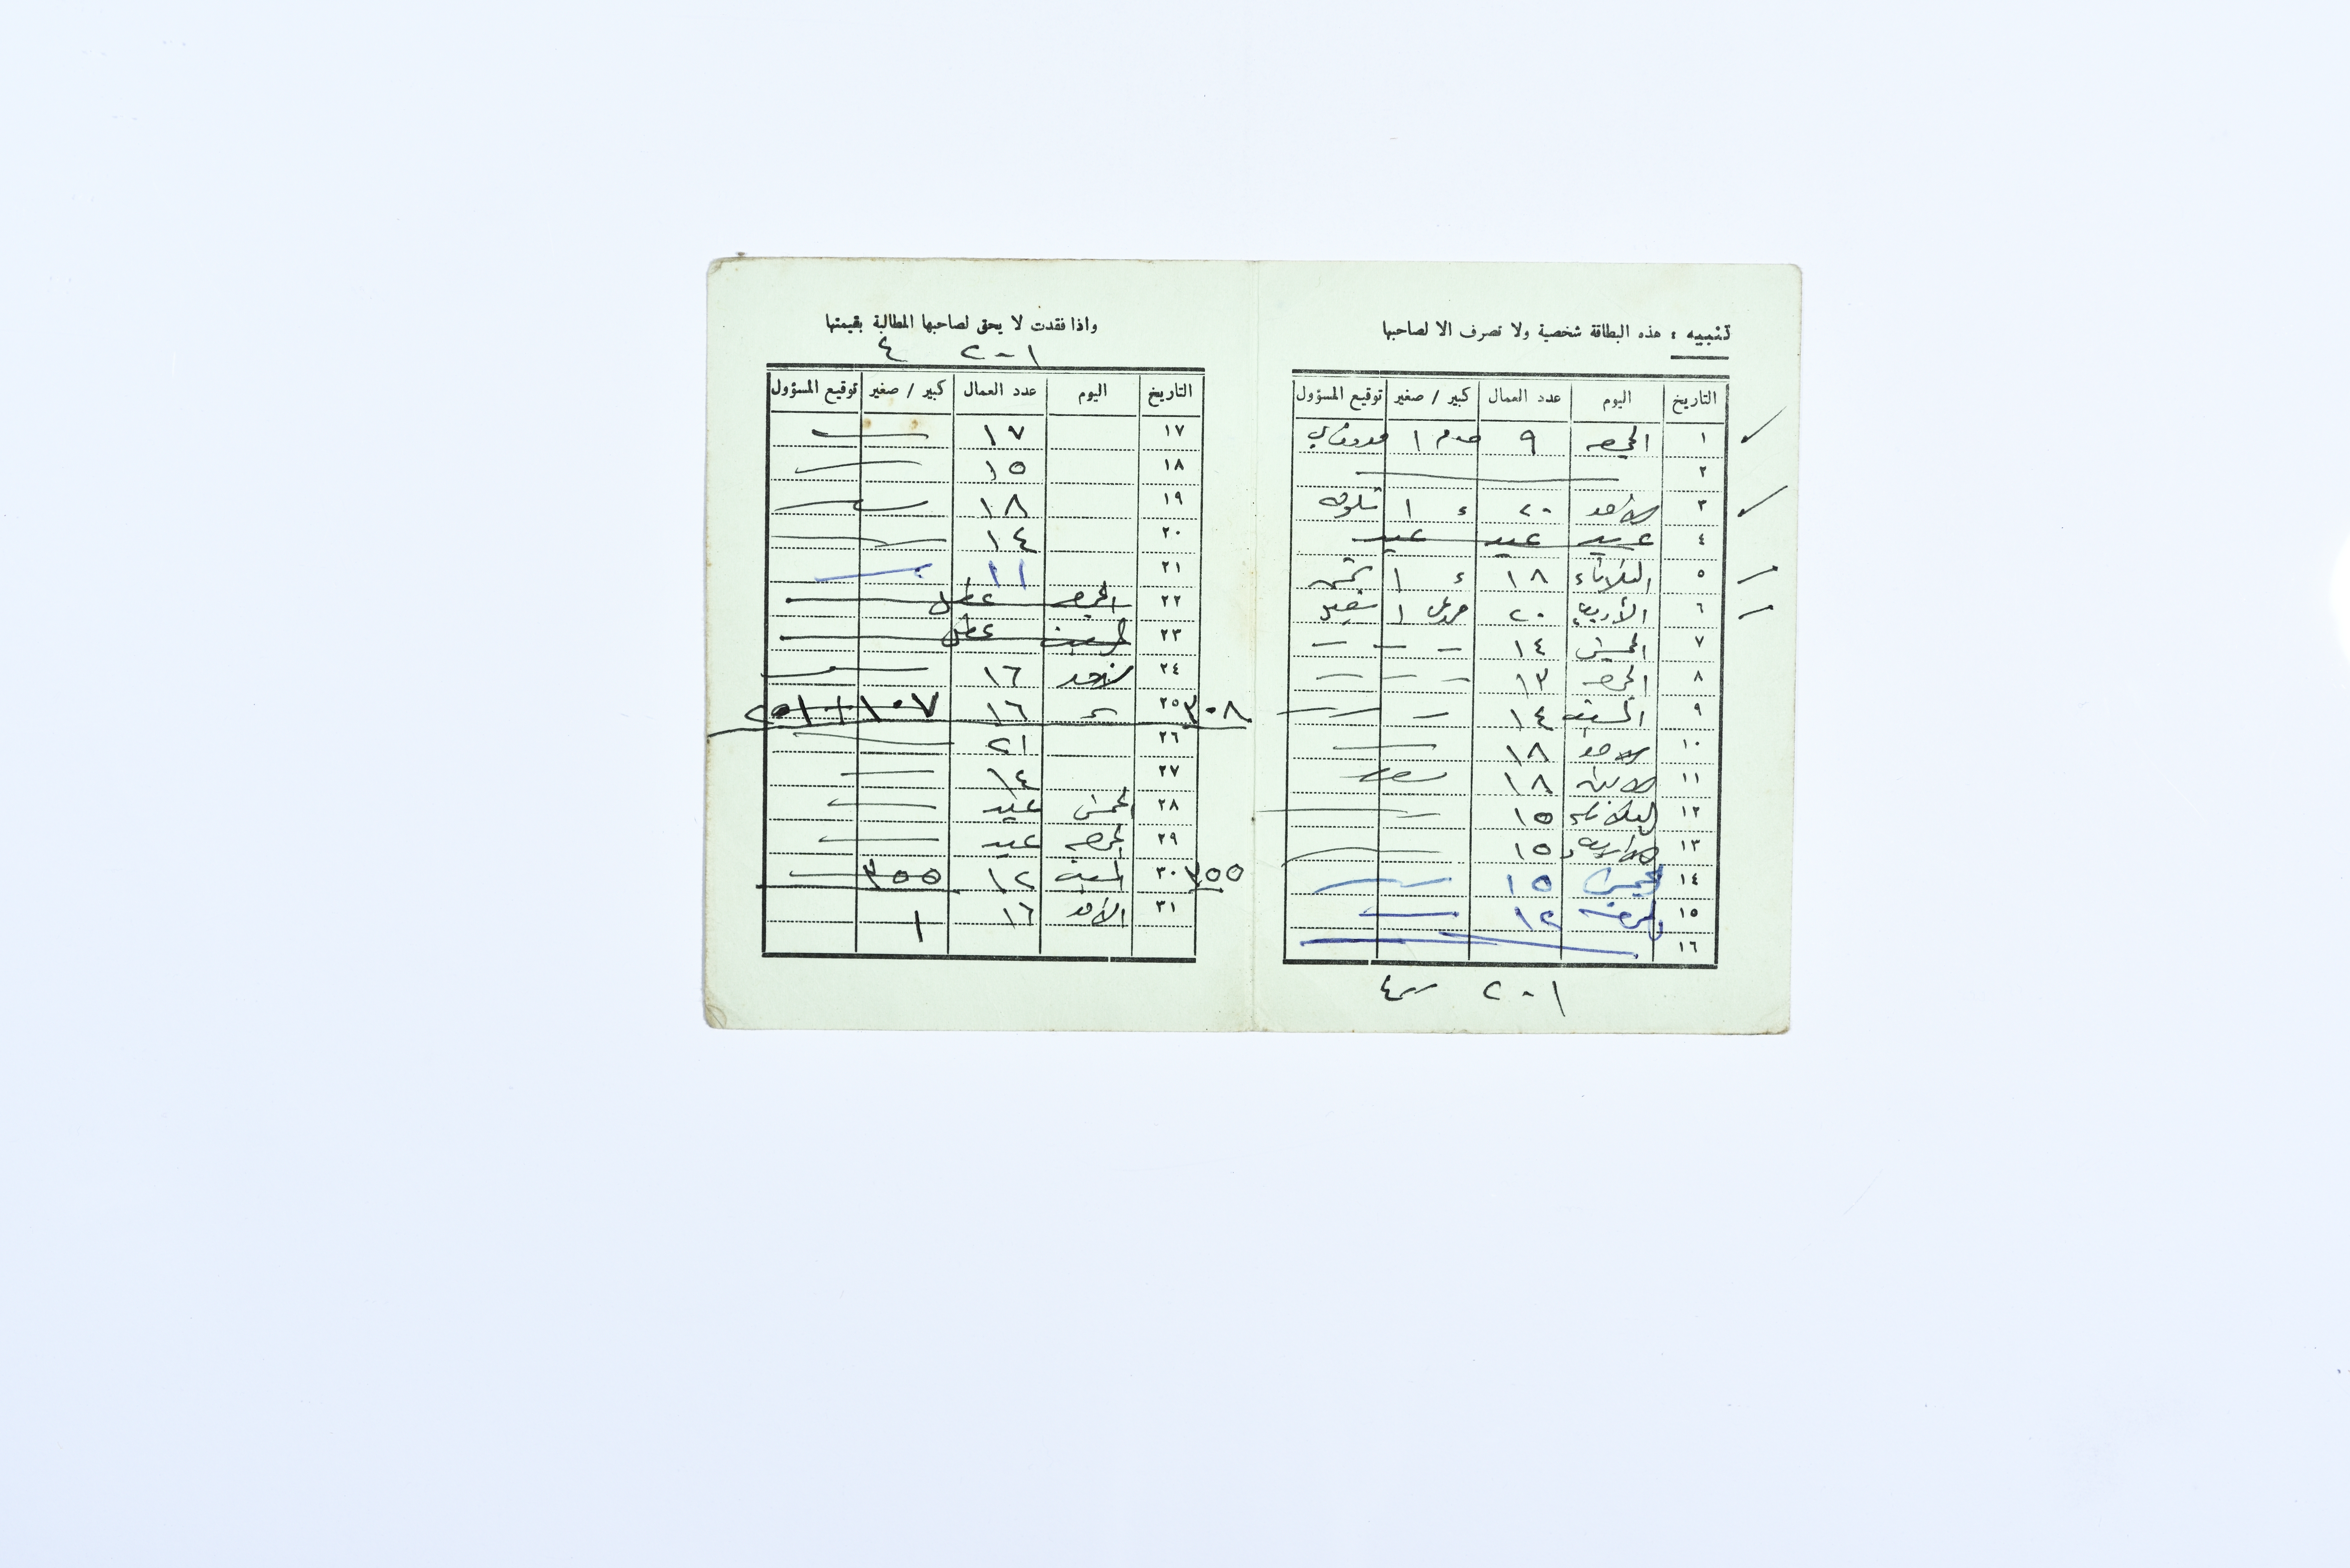 تنبيه : هذه البطاقة شخصية ولا تصرف الا لصاحبها
التاريخ اليوم عدد العمال كبير / صغير توقيع المسؤول
١ الجمعه ٩ ١
٢
٣ الاحد ٢٠ ١
٤ عيد عيد عيد
٥ الثلاثاء ١٨ ء ١
٦ الأربعاء ٢٠ ١
٧ الخميس ١٤
٨ الجمعه ١٣
٩ السبت ١٤
١٠ الاحد ١٨
١١ الاثنين ١٨
١٢ الثلاثاء ١٥
١٣ الاربعاء ١٥
١٤ الخميس ١٥
١٥ الجمعه ١٢
١٦
٢٠١ ٤
واذا فقدت لا يحق لصاحبها المطالبة بقيمتها
٢٠١ ٤
التاريخ اليوم عدد العمال كبير / صغير توقيع المسؤول
١٧ ١٧
١٨ ١٥
١٩ ١٨
٢٠ ١٤
٢١ ١١
٢٢ الجمعه عطل
٢٣ السبت عطل
٢٤ الاحد ١٦
٣٠٨ ٢٥ ١٦ ١٠٧ + ٢٠١
٢٦ ٢١
٢٧ ١٤
٢٨ الخميس عيد
٢٩ الجمعه عيد
٣٥٥ ٣٠ السبت ١٢ ٣٥٥
٣١ الاحد ١٦ ١